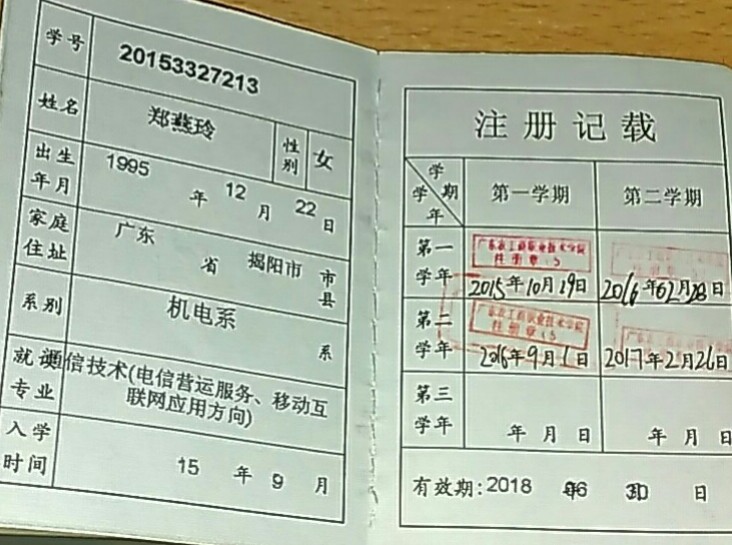 学号 20153327213
姓名 郑燕玲 性别 女
出生年月 1995 年 12 月 22 日
家庭住址 广东 省 揭阳市 市县
系别 机电系 系
就读专业 通信技术(电信营运服务、移动互
联网应用方向)
入学时间 15 年 9 月
注册记载
学期 学年 第一学期 第二学期
广东农工商职业技术学院
注册章(5)
第一学年 2015年10月19日 2016年02月28日
广东农工商职业技术学院
注册章(5)
第二学年 2016年9月1日 2017年2月26日
第三学年 年 月 日 年 月 日
有效期:2018 06 30 日